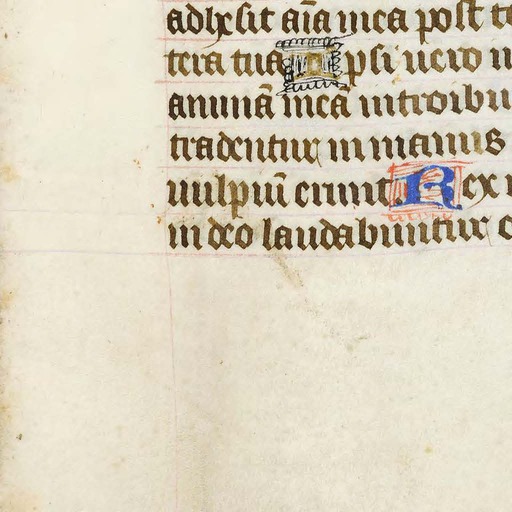 adhesit aīa mea post te
tera tua Ipsi uero
animā meā introibu
tradentur in manus
uulpiū erunt. Rex
in deo laudabuntur o